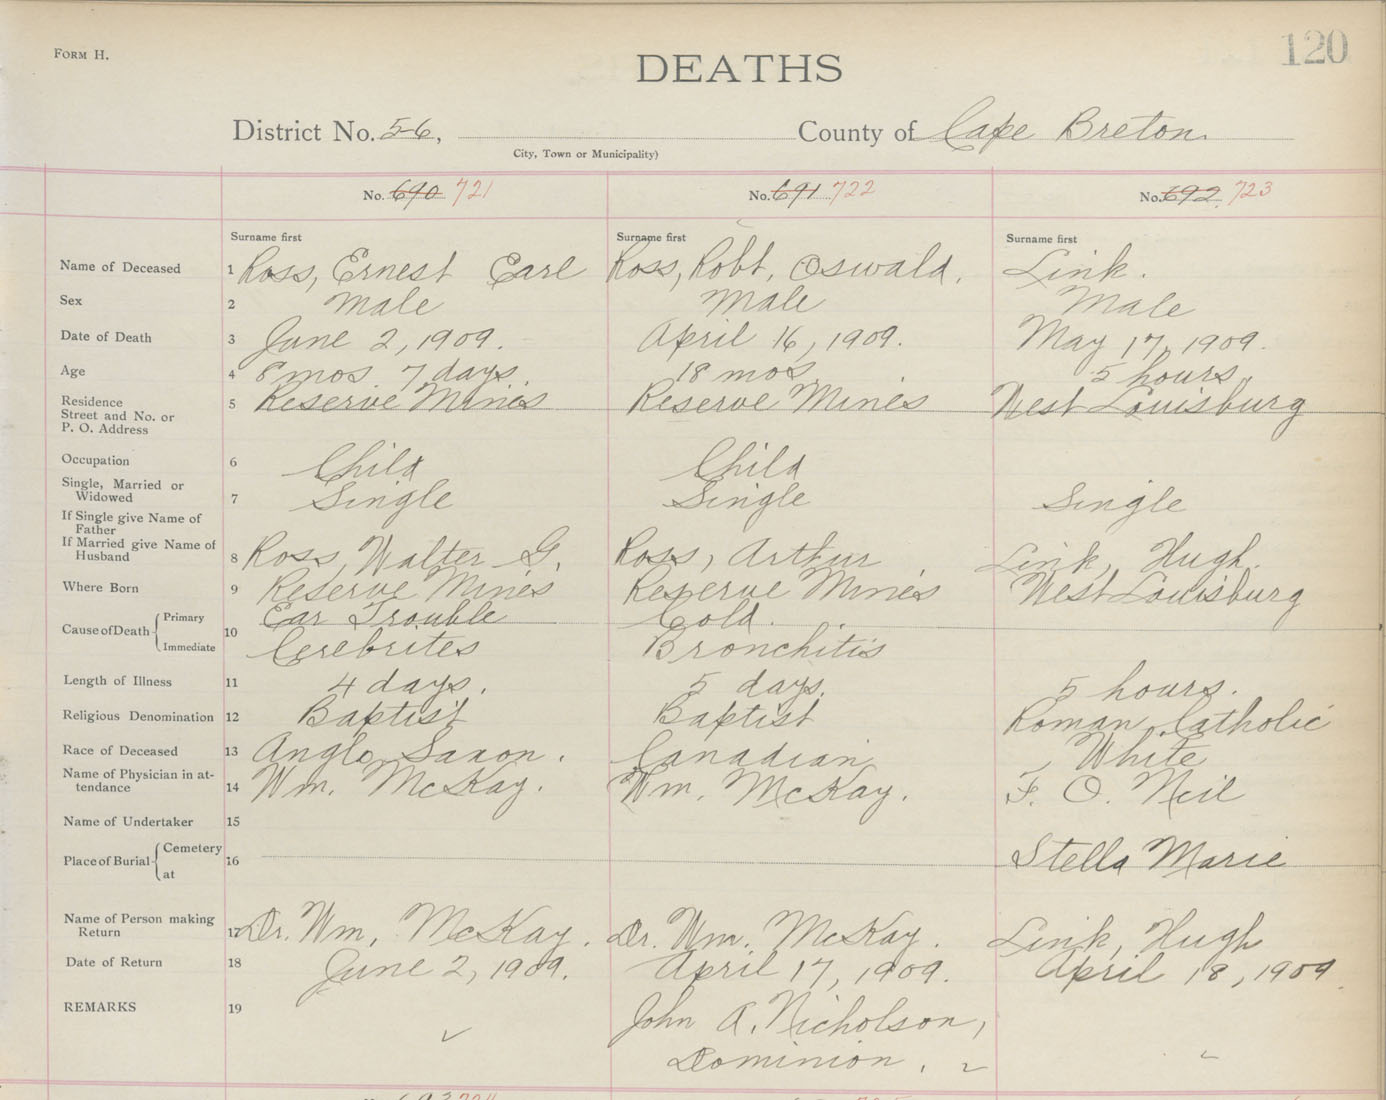 FORM H.
120
DEATHS
District No. 56, County of Cape Breton.
City, Town or Municipality)
No. 690 721 No. 691 722 No. 692 723
Surname first Surname first Surname first
Name of Deceased 1 Ross, Ernest Earl Ross, Robt. Oswald. Link.
Sex 2 Male Male Male
Date of Death 3 June 2, 1909. April 16, 1909. May 17, 1909.
Age 4 8 mos. 7 days. 18 mos. 5 hours.
Residence 5 Reserve Mines Reserve Mines West Louisburg
Street and No. or
P. O. Address
Occupation 6 Child Child
Single, Married or
Widowed 7 Single Single Single
If Single give Name of
Father
If Married give Name of
Husband 8 Ross, Walter G. Ross, Arthur Link, Hugh.
Where Born 9 Reserve Mines Reserve Mines West Louisburg
Cause of Death 10 Primary Ear Trouble Cold.
Immediate Cerebrites Bronchitis
Length of Illness 11 4 days. 5 days. 5 hours.
Religious Denomination 12 Baptist Baptist Roman Catholic
Race of Deceased 13 Anglo Saxon. Canadian White
Name of Physician in at-
tendance 14 Wm. McKay. Wm. McKay. F. O. Neil
Name of Undertaker 15
Place of Burial 16 Cemetery Stella Marie
at
Name of Person making
Return 17 Dr. Wm. McKay. Dr. Wm. McKay. Link, Hugh
Date of Return 18 June 2, 1909. April 17, 1909. April 18, 1909.
REMARKS 19 John A. Nicholson,
Dominion.